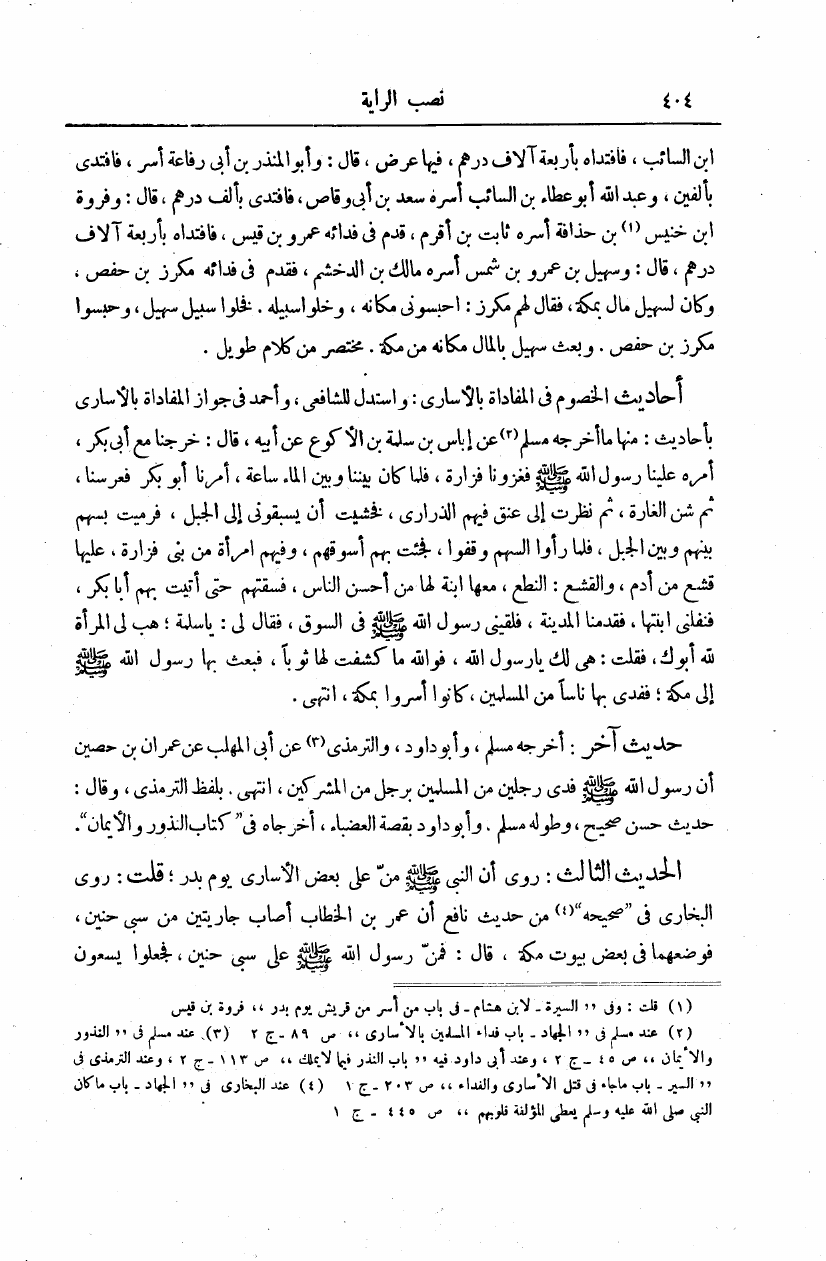 ٤٠٤ نصب الراية
ابن السائب ، فافتداه بأربعة آلاف درهم ، فيها عرض ، قال : وأبو المنذر بن أبى رفاعة أسر ، فافتدى
بألفين ، وعبد الله أبو عطاء بن السائب أسره سعد بن أبى وقاص، فافتدى بألف درهم ، قال : وفروة
ابن خنيس (١) بن حذافة أسره ثابت بن أقرم ، قدم فى فدائه عمرو بن قيس ، فافتداه بأربعة آلاف
درهم ، قال : وسهيل بن عمرو بن شمس أسره مالك بن الدخشم ، فقدم فى فدائه مكرز بن حفص ،
وكان لسهيل مال بمكة، فقال لهم مكرز : احبسونى مكانه ، وخلوا سبيله . فخلوا سبيل سهيل ، وحبسوا
مكرز بن حفص . وبعث سهيل بالمال مكانه من مكة . مختصر من كلام طويل .
أحاديث الخصوم فى المفاداة بالأسارى : واستدل للشافعى ، وأحمد فى جواز المفاداة بالأسارى
بأحاديث : منها ما أخرجه مسلم (٢) عن إياس بن سلمة بن الأكوع عن أبيه ، قال : خرجنا مع أبى بكر ،
أمره علينا رسول الله ﷺ فغزونا فزارة ، فلما كان بيننا وبين الماء ساعة ، أمرنا أبو بكر فعرسنا ،
ثم شن الغارة ، ثم نظرت إلى عنق فيهم الذرارى ، فخشيت أن يسبقونى إلى الجبل ، فرميت بسهم
بينهم وبين الجبل ، فلما رأوا السهم وقفوا ، فجئت بهم أسوقهم ، وفيهم امرأة من بنى فزارة ، عليها
قشع من أدم ، والقشع : النطع ، معها ابنة لها من أحسن الناس ، فسقتهم حتى أتيت بهم أبا بكر ،
فنفلنى ابنتها ، فقدمنا المدينة ، فلقينى رسول الله ﷺ فى السوق ، فقال لى : ياسلمة ؛ هب لى المرأة
لله أبوك، فقلت : هى لك يارسول الله ، فوالله ما كشفت لها ثوباً ، فبعث بها رسول الله ﷺ
إلى مكة ؛ ففدى بها ناساً من المسلمين ، كانوا أسروا بمكة ، انتهى .
حديث آخر : أخرجه مسلم ، وأبو داود ، والترمذى (٣) عن أبى المهلب عن عمران بن حصين
أن رسول الله ﷺ فدى رجلين من المسلمين برجل من المشركين ، انتهى . بلفظ الترمذى ، وقال :
حديث حسن صحيح ، وطوله مسلم . وأبو داود بقصة العضباء ، أخرجاه فى "كتاب النذور والأيمان".
الحديث الثالث : روى أن النبى ﷺ منّ على بعض الأسارى يوم بدر ؛ قلت : روى
البخارى فى "صحيحه" (٤) من حديث نافع أن عمر بن الخطاب أصاب جاريتين من سبى حنين ،
فوضعهما فى بعض بيوت مكة ، قال : فمنّ رسول الله ﷺ على سبى حنين ، فجعلوا يسعون
(١) قلت : وفى ,, السيرة ـ لابن هشام ـ فى باب من أسر من قريش يوم بدر ,, فروة بن قيس
(٢) عند مسلم فى ,, الجهاد ـ باب فداء المسلمين بالأسارى ,, ص ٨٩ ـ ج ٢ (٣) عند مسلم فى ,, النذور
والأيمان ,, ص ٤٥ ـ ج ٢ ، وعند أبى داود فيه ,, باب النذر فيما لايملك ,, ص ١١٣ ـ ج ٢ ، وعند الترمذى فى
,, السير ـ باب ماجاء فى قتل الأسارى والفداء ,, ص ٢٠٣ ـ ج ١ (٤) عند البخارى فى ,, الجهاد ـ باب ماكان
النبي صلى الله عليه وسلم يعطى المؤلفة قلوبهم ,, ص ٤٤٥ ـ ج ١